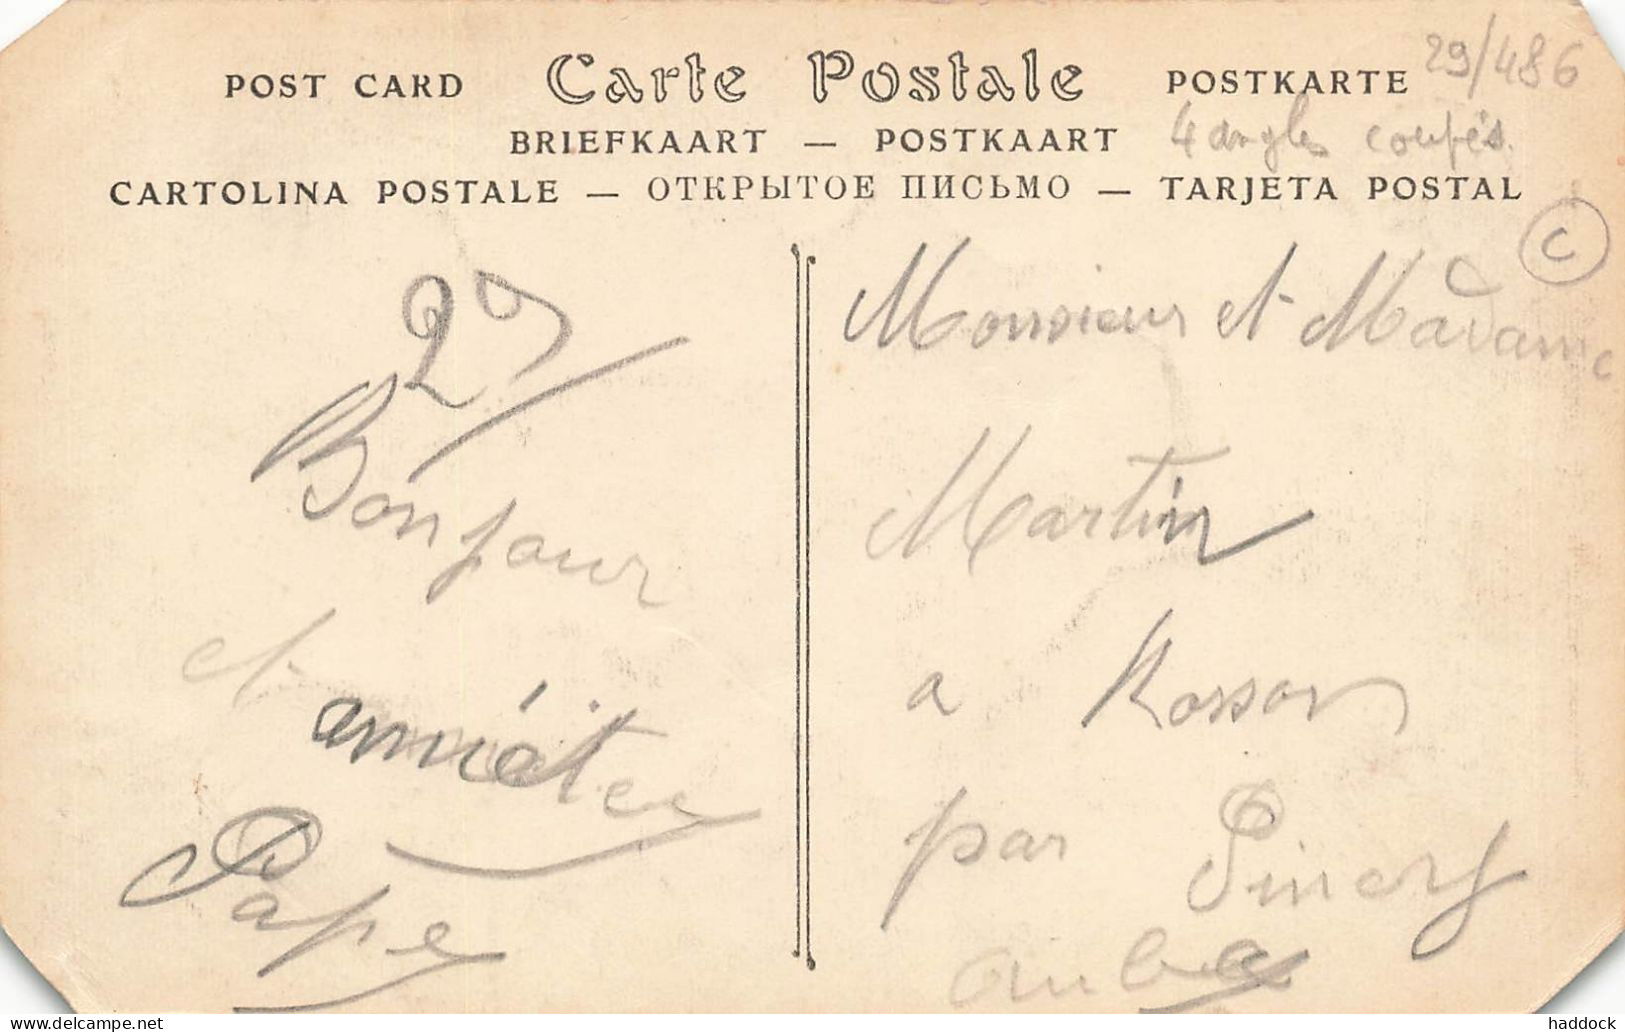 POST CARD Carte Postale POSTKARTE 29/486
BRIEFKAART — POSTKAART 4 angles coupés.
CARTOLINA POSTALE — ОТКРЫТОЕ ПИСЬМО — TARJETA POSTAL
C
29
Bonjour
et
amiétee
Pape
Monsieur et Madame
Martin
a Rosson
par Pinery
aube
delcampe.net
haddock